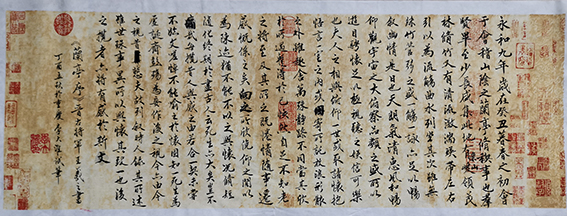 永和九年歲在癸丑暮春之初會
于會稽山陰之蘭亭脩稧事也羣
賢畢至少長咸集此地有崇山峻領茂
林脩竹又有清流激湍映帶左右
引以為流觴曲水列坐其次雖無
絲竹管弦之盛一觴一詠亦足以暢
敘幽情是日也天朗氣清惠風和暢
仰觀宇宙之大俯察品類之盛所以
遊目騁懷足以極視聽之娛信可樂
也夫人之相與俯仰一世或取諸懷抱
悟言一室之內或因寄所託放浪形骸
之外雖趣舍萬殊靜躁不同當其欣
於所遇暫得於己快然自足不知老
之將至及其所之既惓情隨事遷
感慨係之矣向之所欣俛仰之閒以
為陳迹猶不能不以之興懷況脩短
隨化終期於盡古人云死生亦大矣豈不
痛哉每攬昔人興感之由若合一契未嘗
不臨文嗟悼不能喻之於懷固知一死生為
虛誕齊彭殤為妄作後之視今亦由今
之視昔悲夫故列敘時人錄其所述
雖世殊事異所以興懷其致一也後
之攬者亦將有感於斯文
蘭亭序晉右將軍王羲之書
丁亥立秋